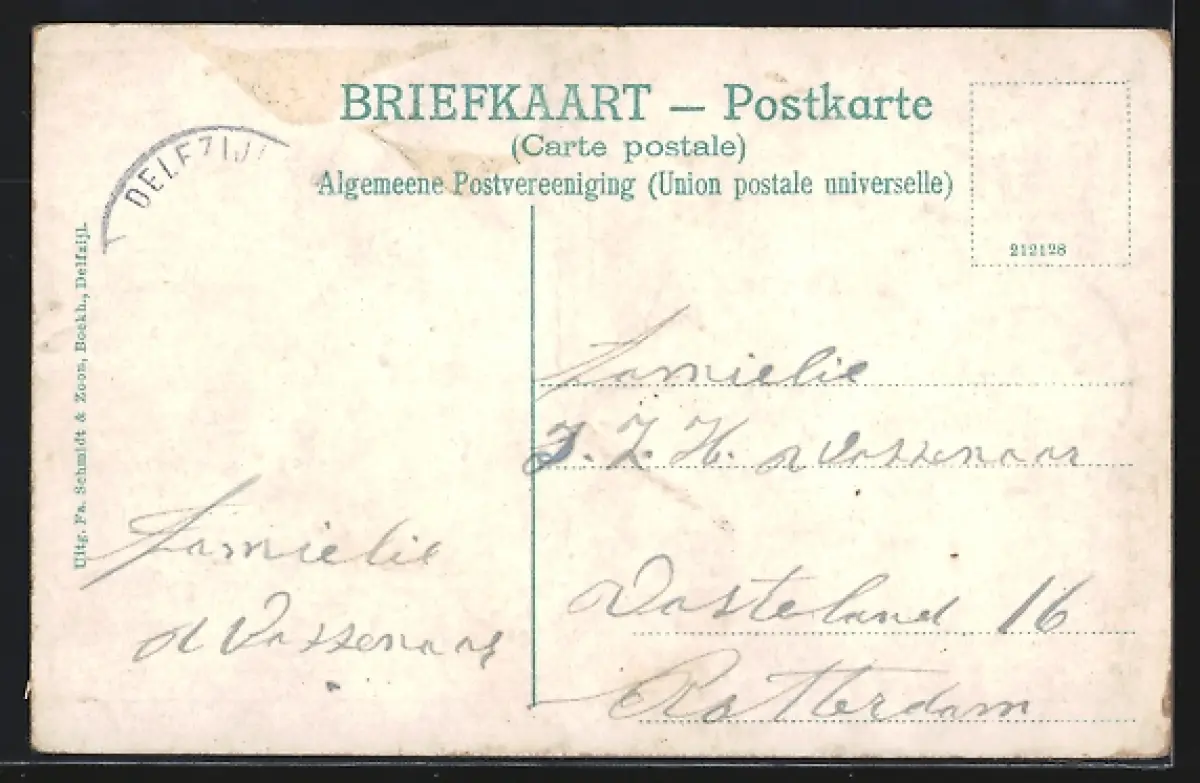 BRIEFKAART — Postkarte
(Carte postale)
Algemeene Postvereeniging (Union postale universelle)
DELFZIJL
212128
Uitg. Fa. Schmidt & Zoon, Boekh., Delfzijl.
Famielie
d Vassenaar
Famielie
J. Z. H. d Vassenaar
Vasteland 16
Rotterdam